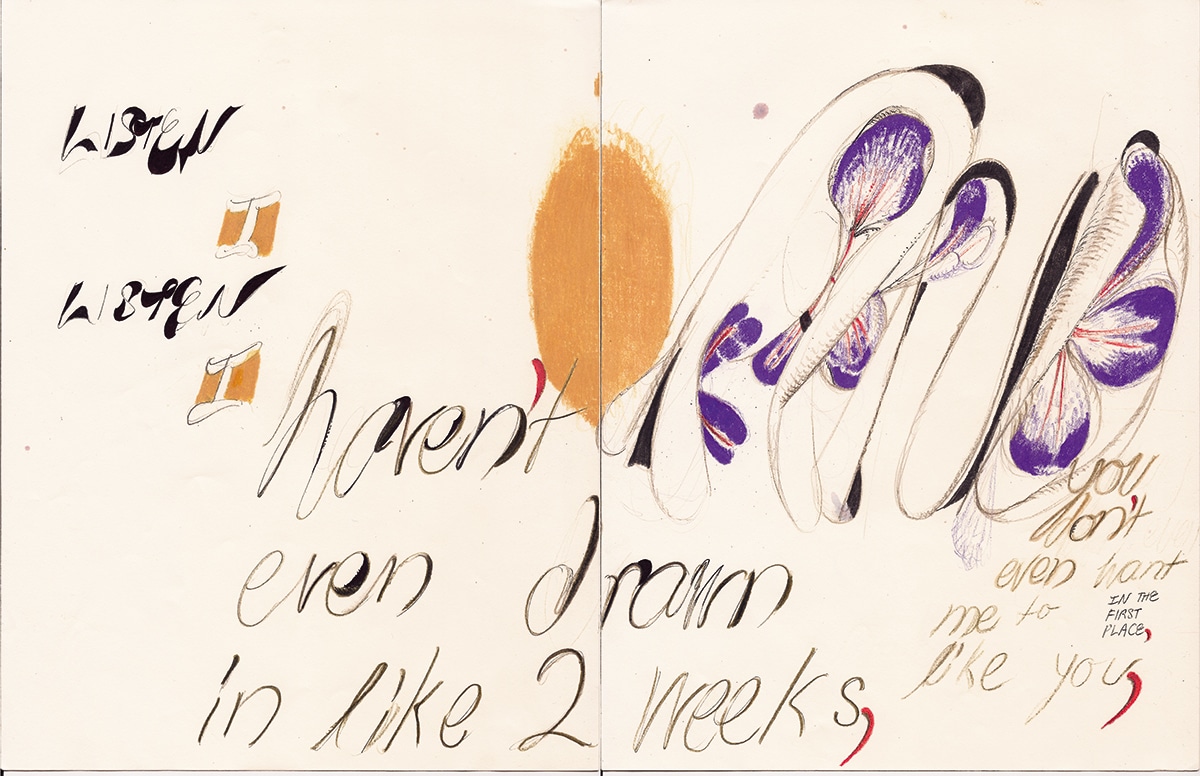 LISTEN
I
LISTEN
I
haven't
even drawn
in like 2 weeks,
AND
you
don't
even want
me to
like you,
IN THE
FIRST
PLACE,